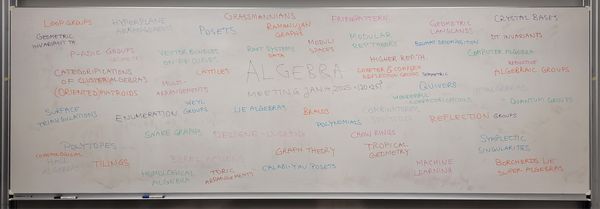 LOOP GROUPS
HYPERPLANE
ARRANGEMENTS
GRASSMANNIANS
RAMANUJAN
GRAPHS
FRISE PATTERN
GEOMETRIC
LANGLANDS
CRYSTAL BASES
GEOMETRIC
INVARIANT TH.
POSETS
MODULI
SPACES
MODULAR
REP THEORY
DT INVARIANTS
P-ADIC GROUPS
VECTOR BUNDLES
ROOT SYSTEMS
DATA
COMPUTER ALGEBRA
CATEGORIFICATIONS
OF CLUSTER ALGEBRAS
(ORIENTED) MATROIDS
MULTI-
ARRANGEMENTS
LATTICES
ALGEBRA
MEETING
HIGHER REP TH.
COMPLEX
REFLECTION GROUPS
SYMMETRIC
REDUCTIVE
ALGEBRAIC GROUPS
QUIVERS
QUANTUM GROUPS
SURFACE
TRIANGULATIONS
ENUMERATION
WEYL
GROUPS
LIE ALGEBRAS
BRAIDS
POLYNOMIALS
COMBINATORICS
REFLECTION GROUPS
SNAKE GRAPHS
CHOW RINGS
SYMPLECTIC
SINGULARITIES
POLYTOPES
GRAPH THEORY
TROPICAL
GEOMETRY
COHOMOLOGICAL
HALL
ALGEBRAS
TILINGS
HOMOLOGICAL
ALGEBRA
TORIC
ARRANGEMENTS
CALABI-YAU POSETS
MACHINE
LEARNING
BORCHERDS LIE
SUPER ALGEBRAS